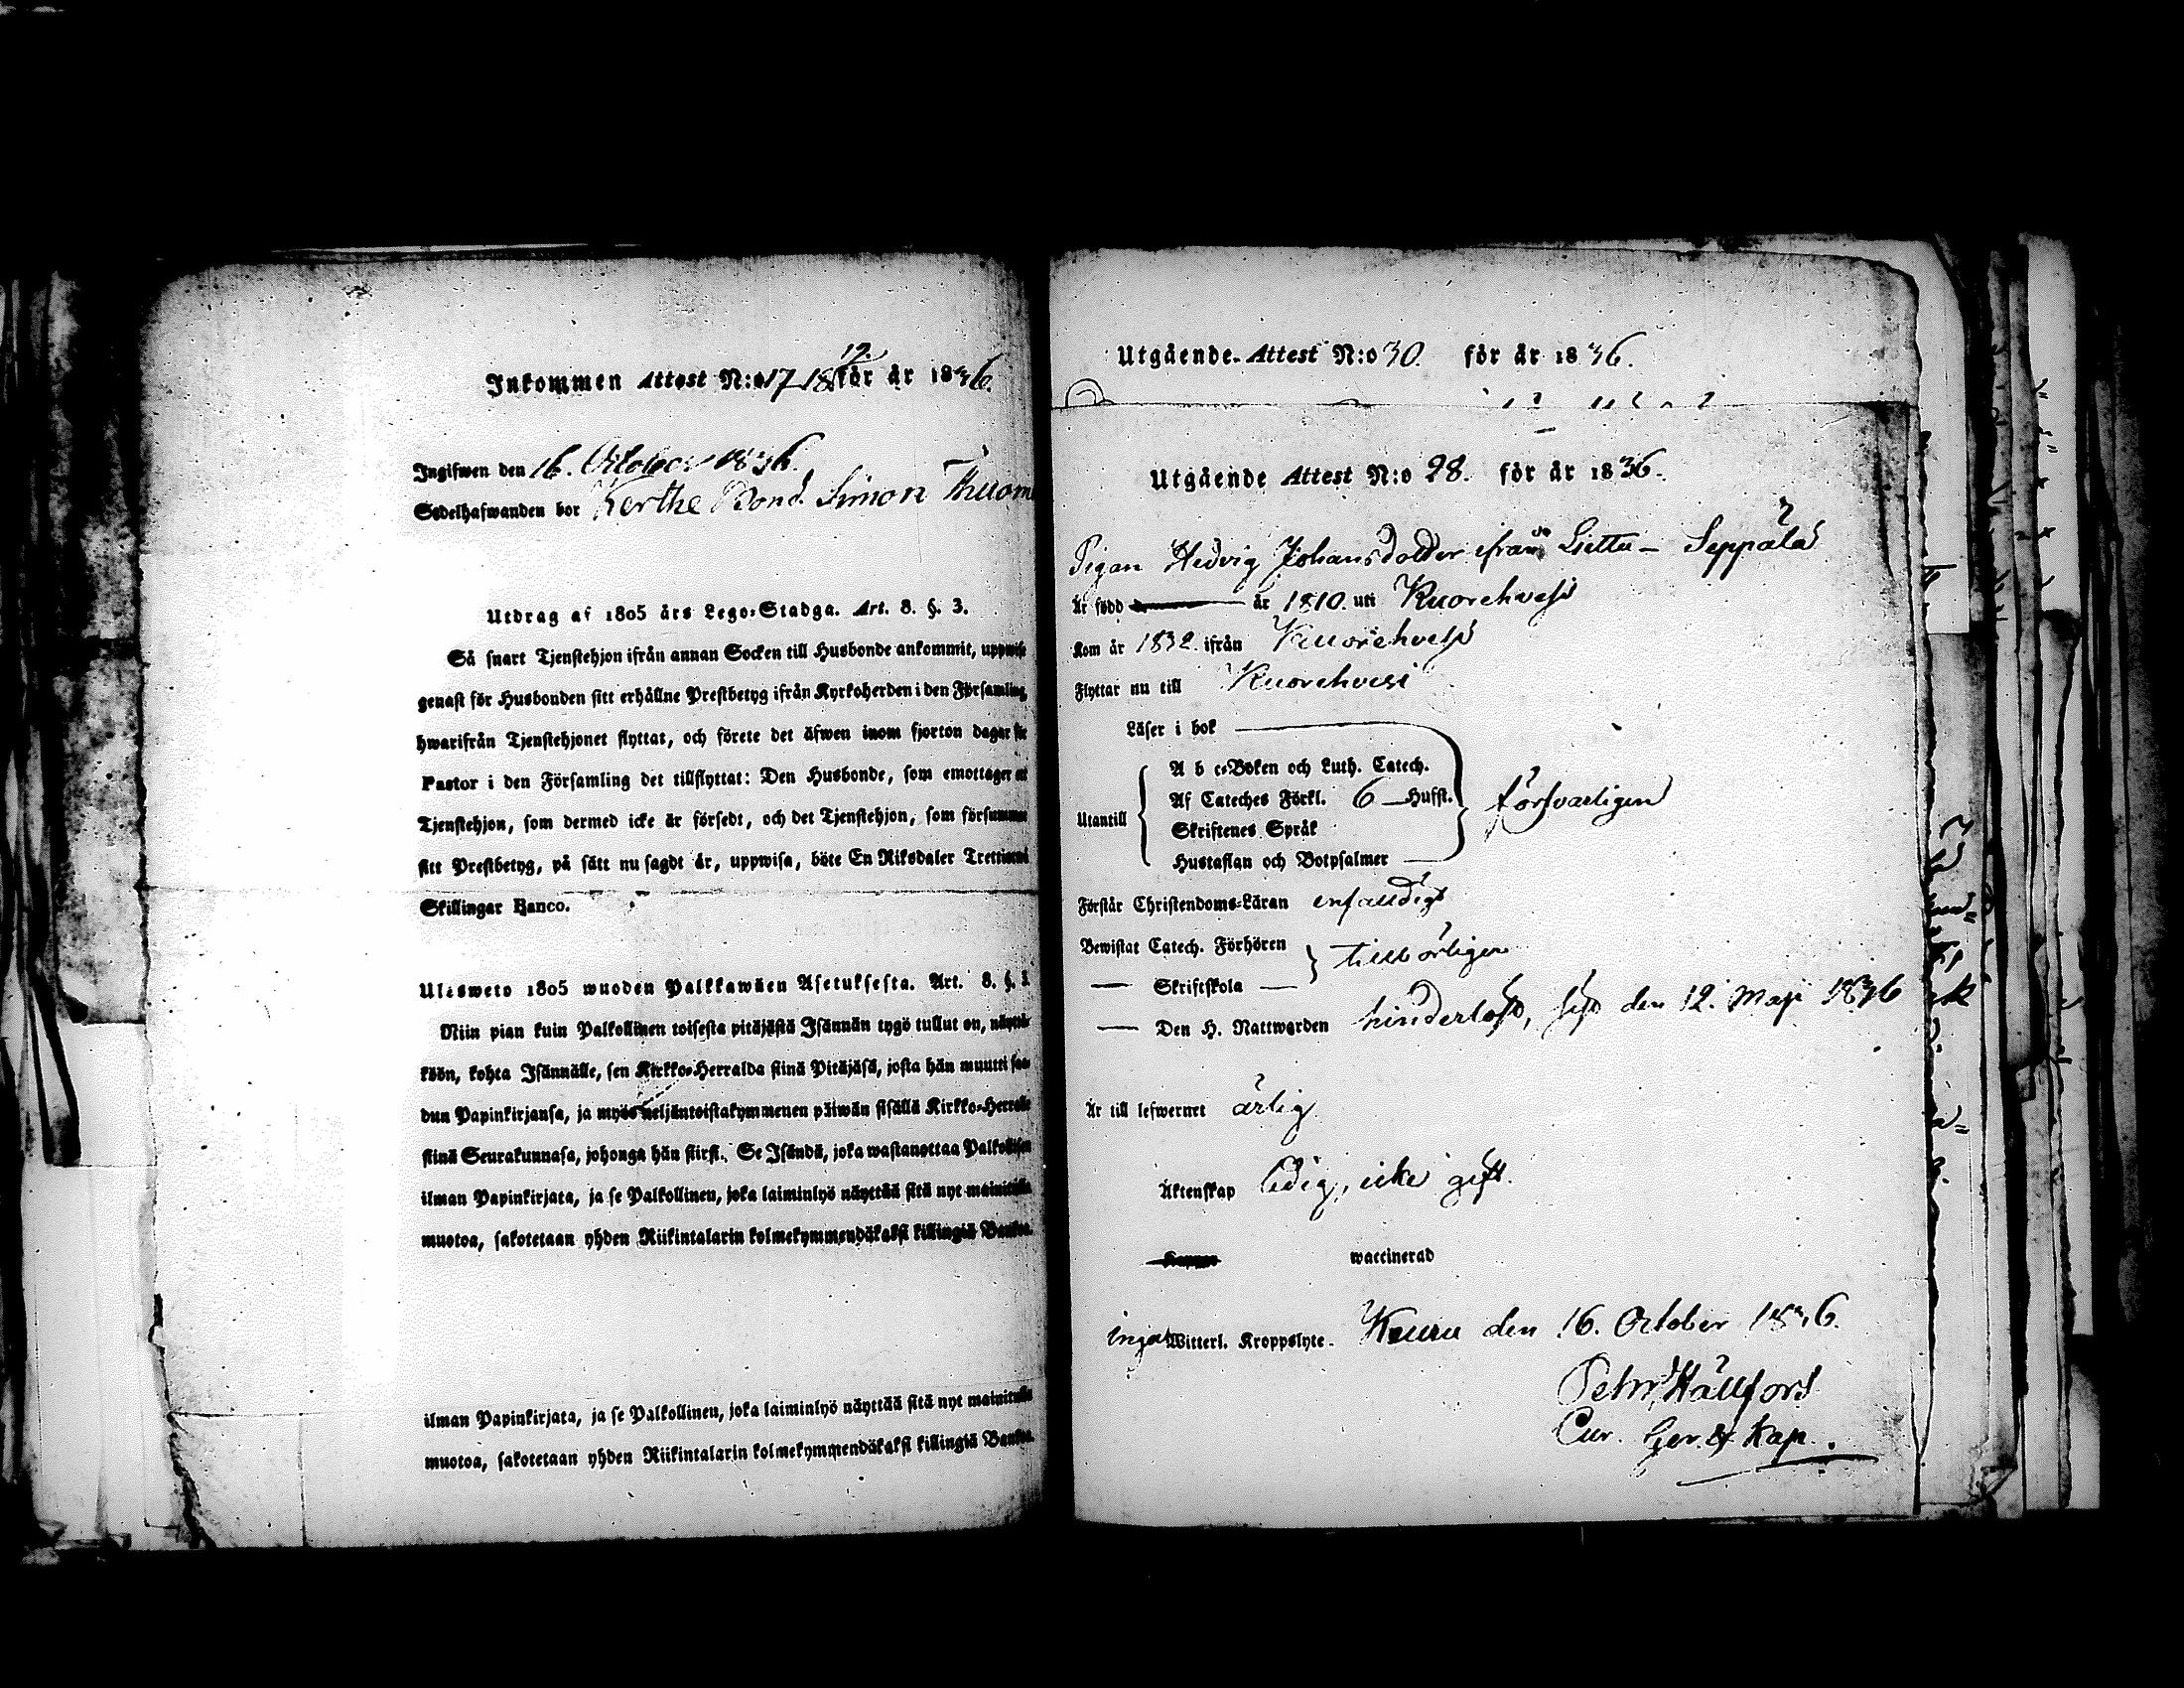 Inkommen Attest N:o 17 18 19. för år 1836.
Ingifwen den 16. October 1836.
Sedelhafwanden bor Kerthe Bond. Simon Thuom
Utdrag af 1805 års Lego-Stadga. Art. 8. §. 3.
Så snart Tjenstehjon ifrån annan Socken till Husbonde ankommit, uppwise
genast för Husbonden sitt erhållne Prestbetyg ifrån Kyrkoherden i den Församling,
hwarifrån Tjenstehjonet flyttat, och förete det äfwen inom fjorton dagar för
Pastor i den Församling det tillflyttat: Den Husbonde, som emottager et
Tjenstehjon, som dermed icke är försedt, och det Tjenstehjon, som försummat
sitt Prestbetyg, på sätt nu sagdt är, uppwisa, böte En Riksdaler Trettiotwå
Skillingar Banco.
Ulosweto 1805 wuoden Palkkawäen Asetuksesta. Art. 8. §. 3.
Niin pian kuin Palkollinen toisesta pitäjästä Isännän tygö tullut on, näyttä-
köön, kohta Isännälle, sen Kirkko-Herralda siinä Pitäjäsä, josta hän muutti saa-
dun Papinkirjansa, ja myös neljäntoistakymmenen päiwän sisällä Kirkko-Herralle
siinä Seurakunnasa, johonga hän siirst. Se Isändä, joka wastanottaa Palkollisen
ilman Papinkirjata, ja se Palkollinen, joka laiminlyö näyttää sitä nyt mainitulla
muotoa, sakotetaan yhden Riikintalarin kolmekymmendäkaksi killingiä Bankoa.
ilman Papinkirjata, ja se Palkollinen, joka laiminlyö näyttää sitä nyt mainitulla
muotoa, sakotetaan yhden Riikintalarin kolmekymmendäkaksi killingiä Bankoa.
Utgående Attest N:o 30. för år 1836.
Utgående Attest N:o 28. för år 1836.
Pigan Hedvig Johansdotter ifrån Liettu- Seppälä
Är född år 1810. uti Kuorehvesi
Kom år 1832. ifrån Kuorehvesi
Flyttar nu till Kuorehvesi
Läser i bok
A b c-Boken och Luth. Catech.
Af Cateches Förkl. 6 Hufst.
Utantill försvarligen
Skriftenes Språk
Hustaflan och Botpsalmer
Förstår Christendoms-Läran enfaldigt
Bewistat Catech. Förhören tillbörligen
— Skriftskola —
— Den H. Nattwarden hinderlöst, sist den 12. Maji 1836
Är till lefwernet ärlig
Äktenskap ledig, icke gift.
waccinerad
inga Witterl. Kroppslyte. Keuru den 16. October 1836.
Petr. Hällfors
Cur. Ger. & Kap.